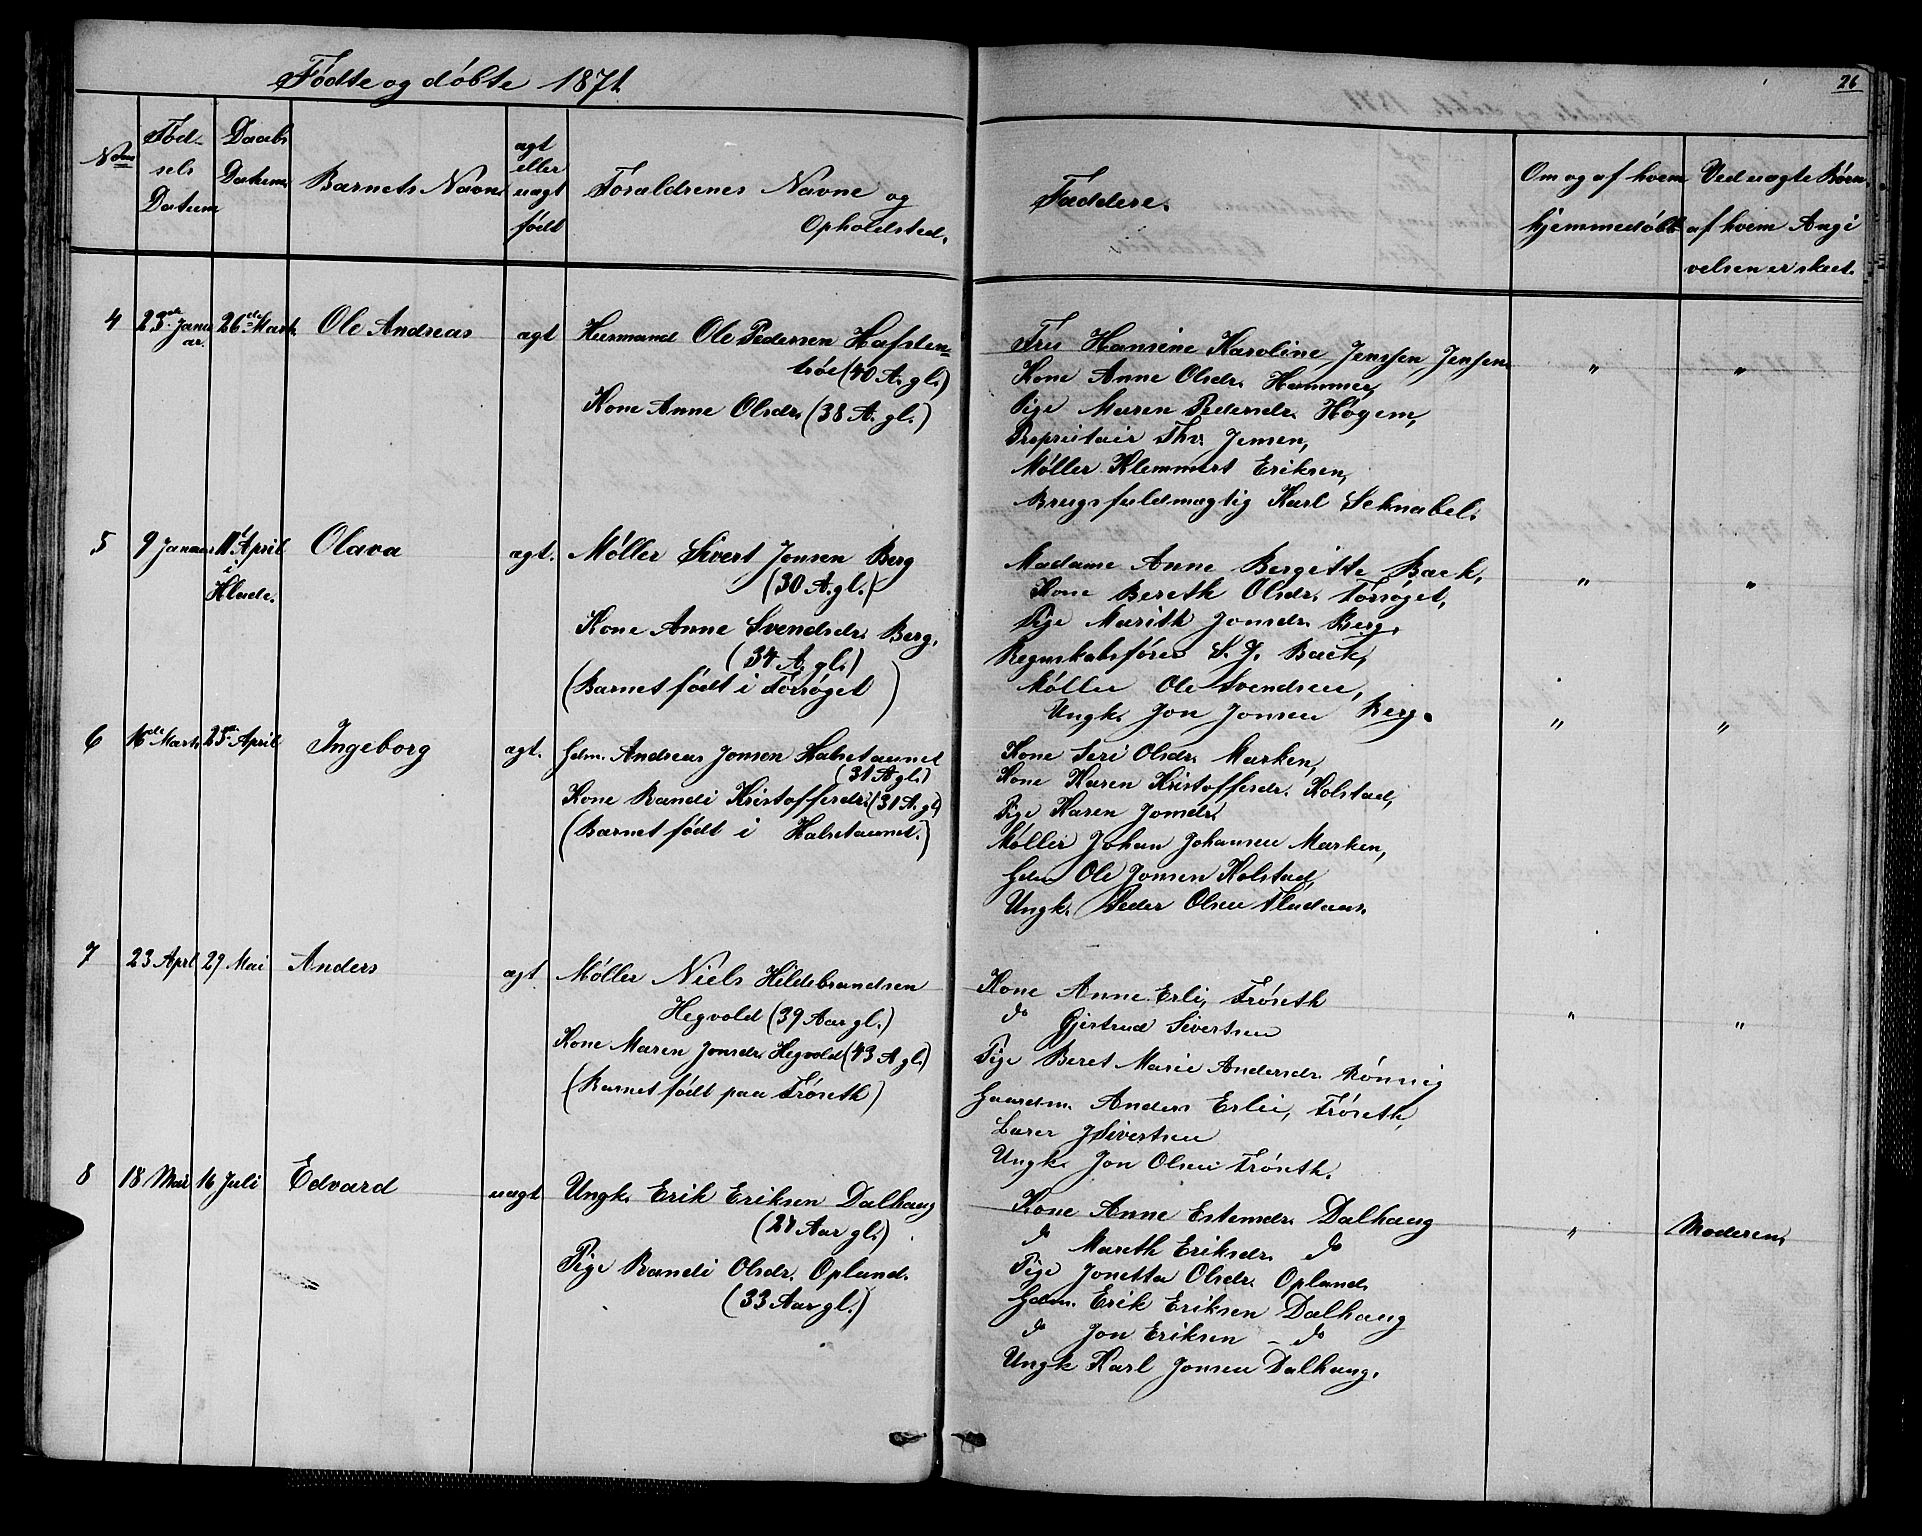 Fødte og døbte 1871
26
Nom
Fød-
sels
Datum
Daabs
Datum
Barnets Navn
ægt
eller
uægt
født
Forældrenes Navne og
Opholdsted.
Faddere.
Om og af hvem
hjemmedøbt
Ved uægte Børn
af hvem Angi
velsen er skeet.
4 23de Janu 26de Marts Ole Andreas ægt Huusmand Ole Pedersen Hafsten=
ar.
trøe (40 A. gl.)
Kone Anne Olsdr. (38 A. gl.)
Fru Hansine Karoline Jenssen Jenssen
Kone Anne Olsdr. Hammer,
Pige Maren Pedersdr. Høgem,
Proprietair Thv. Jensen,
Møller Klemmert Eriksen,
Brugsfuldmægtig Karl Schnabel.
" "
5 9 Januar 11 April Olava ægt. Møller Sivert Jonsen Berg
i
Hlade.
(30 A. gl.)
Kone Anne Svendsdr. Berg.
(34 A. gl.)
(Barnet født i Forsøget)
Madame Anne Bergitte Back,
Kone Bereth Olsdr. Forsøget,
Pige Marith Jonsdr. Berg,
Regnskabsfører S. J. Back,
Møller Ole Svendsen,
Ungk. Jon Jonsen Berg.
" "
6 16de Marts 23de April Ingeborg ægt. Gdm. Andreas Jonsen Halsetaunet
(31 A gl.)
Kone Randi Kristoffersdr. (31 A. gl)
(Barnet født i Halsetaunet.)
Kone Seri Olsdr. Marken,
Kone Karen Kristoffersdr. Kolstad,
Pige Karen Jonsdr.
Møller Johan Johansen Marken,
Gdm Ole Jonsen Kolstad,
Ungk. Peder Olsen Fladaas.
" "
7 23 Aprl 29 Mai Anders ægt Møller Niels Hildebrandsen
Hegvold (39 Aar gl.)
Kone Maren Jonsdr. Hegvold (43 A gl.)
(Barnet født paa Frøseth)
Kone Anne Erli, Frøseth
do Gjertrud Sivertsen
Pige Beret Marie Andersdr. Rønnig
Gaardm. Anders Erlii, Frøseth,
Lærer J Sivertsen
Ungk. Jon Olsen Frøseth.
" "
8 18 Mai 16 Juli Edvard uægt Ungk. Erik Eriksen Dalhaug
(27 Aar gl.)
Pige Randi Olsdr. Opland.
(33 Aar gl.)
Kone Anne Estensdr. Dalhaug
do Mareth Eriksdr. do
Pige Jonetta Olsdr. Opland.
Gdm. Erik Eriksen Dalhaug
do Jon Eriksen do
Ungk Karl Jonsen Dalhaug.
" Moderen.